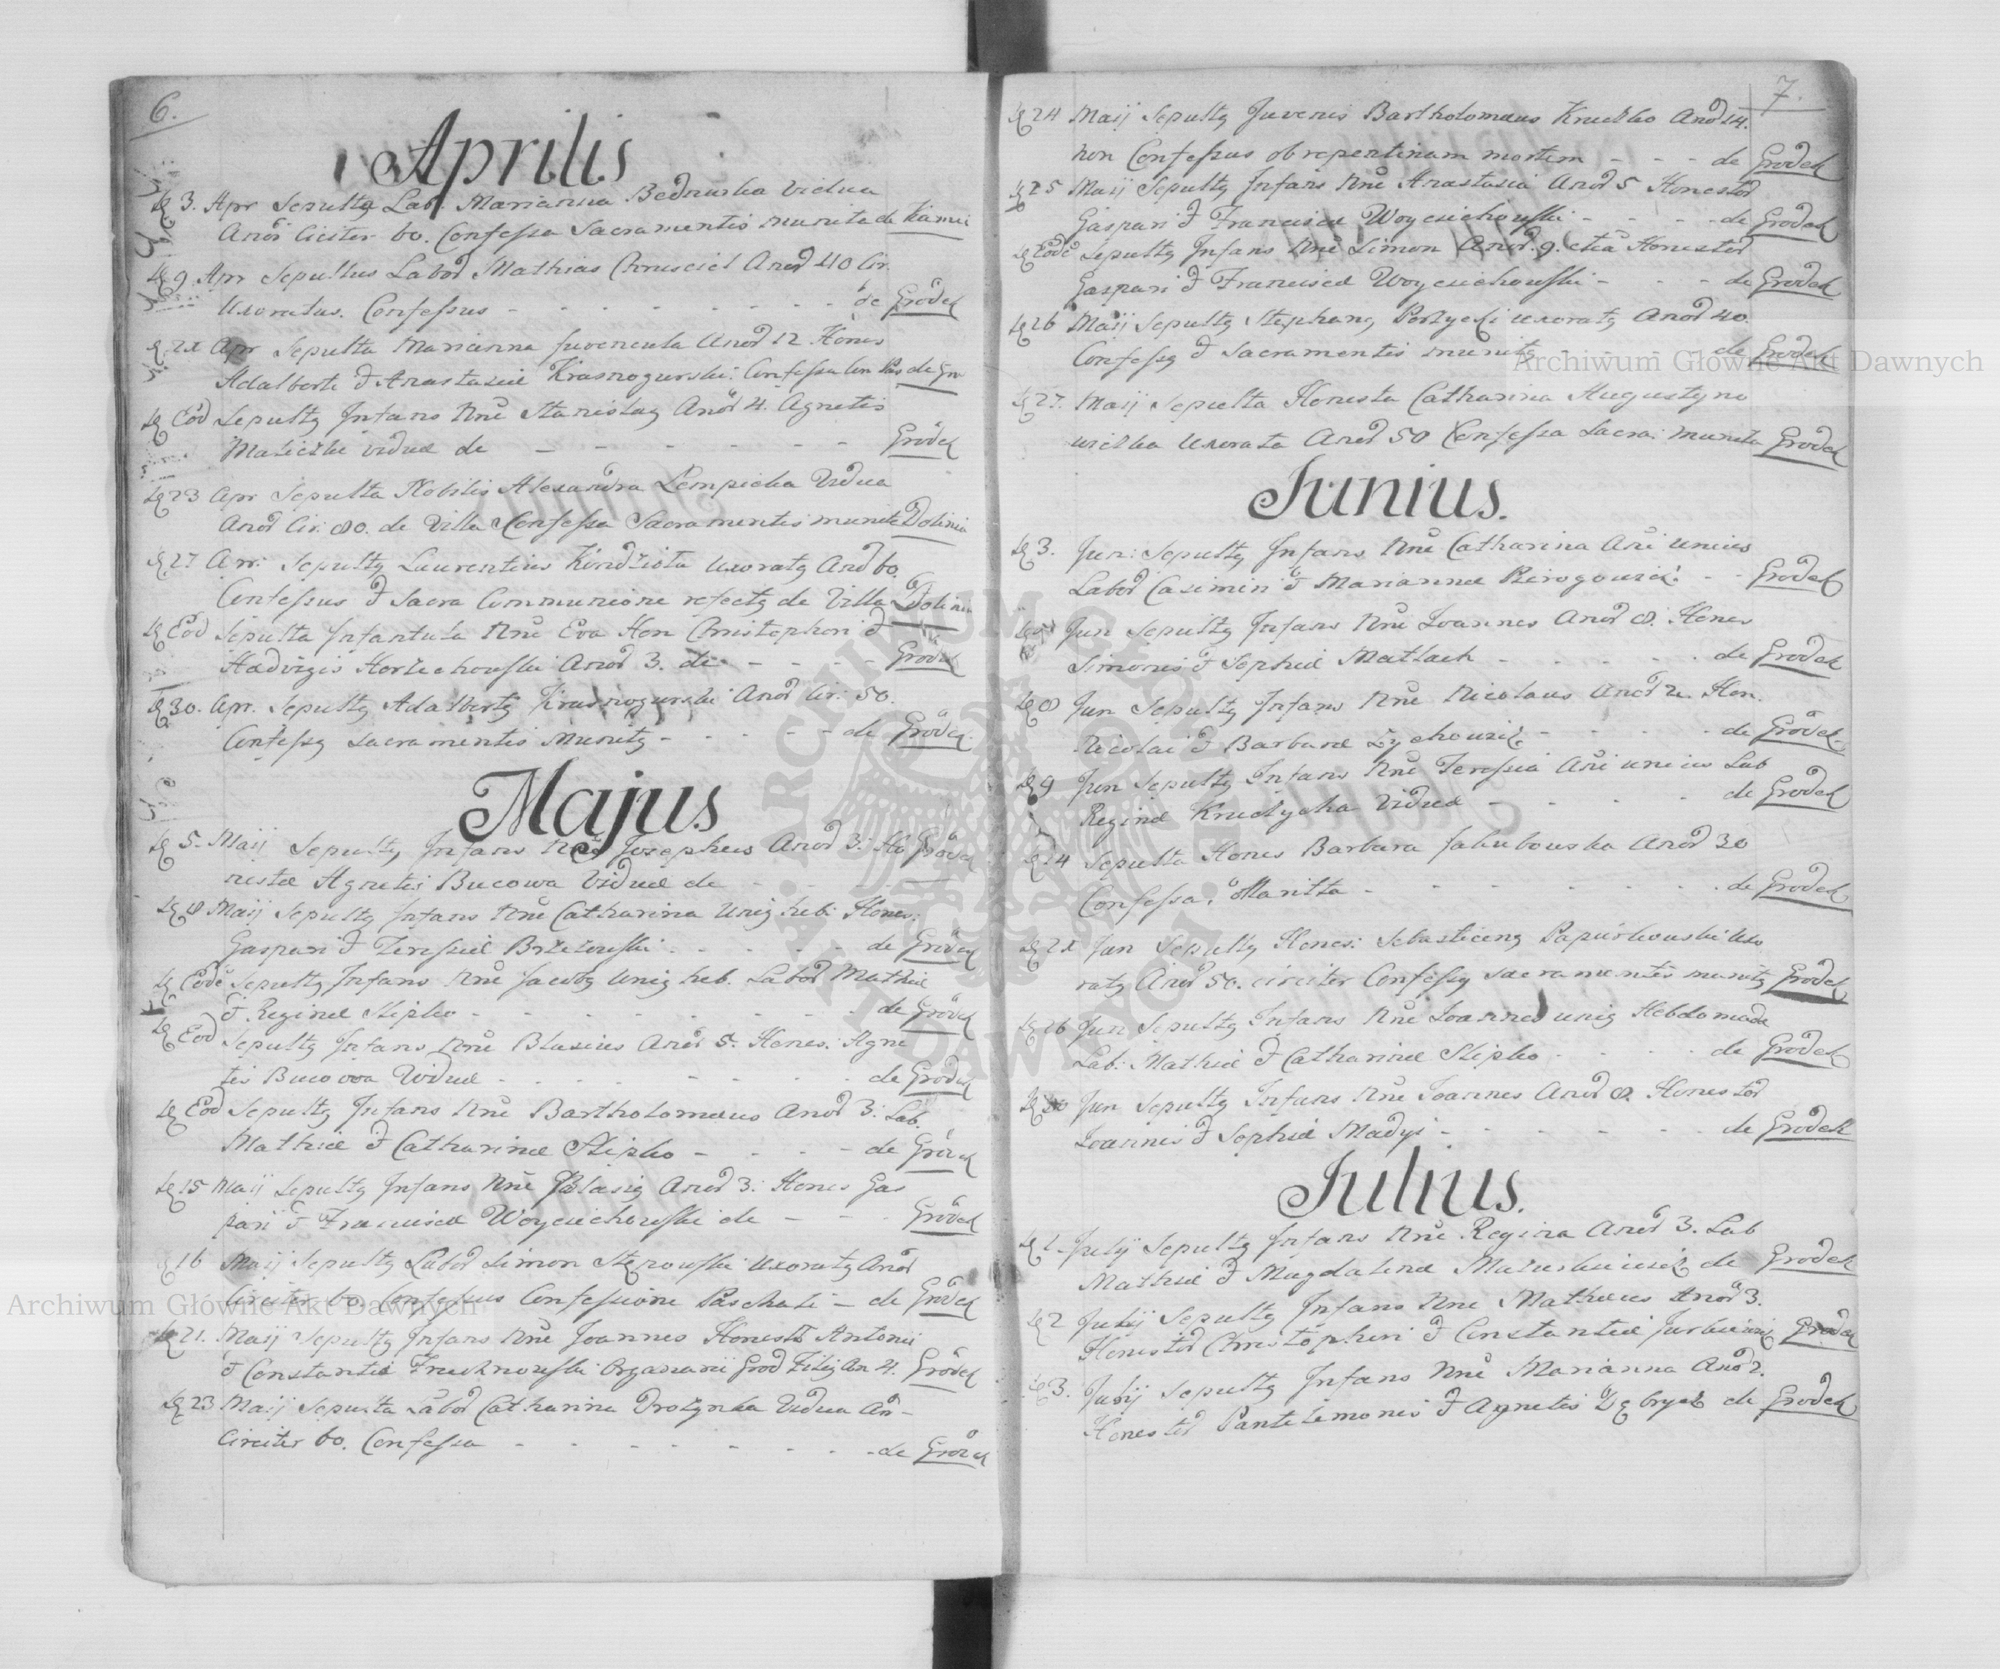 6.
Aprilis
D 3. Apr Sepulta Lab. Marianna Bednarska Vidua
Anor̃ Circiter 60. Confessa Sacramentis munita de
D 9 Apr Sepultus Labor̃ Mathias Chrusciel Anor̃ 40 Cir.
Uxoratus. Confessus - - - - - - - de Grodek
Apr Sepulta Marianna juvencula Anor̃ 12 Hones
Adalberti & Anastasiæ Krasnogurski. Confessa
D Eod Sepultq Infans Nñe Stanislaq Anor̃ 4. Agnetis
viduæ de - - - - - - Grodek
D 23 Apr Sepulta Nobilis Alexandra Lempicka Vidua
Anor̃ Cir. 80. de Villa Confessa Sacramentis munita Dolinia
D 27 Apr: Sepultq Laurentius Uxoratq Anor̃ 60.
Confessus & Sacra Communione refectq de Villa
D Eod Sepulta Infantula Nñe Eva Hon Christophori &
Hedvigis Anor̃ 3. de - - - - Grodek
D 30. Apr. Sepultq Adalbertq Krasnogurski Anor̃ Cir. 50.
Confessq Sacramentis Munitq - - - - - de Grodek
Majus
D 5. Maij Sepultq Infans Nñe Josephus Anor̃ 3: Ho Grodek
nestæ Agnetis Bucowa Viduæ de - - -
D 8 Maij Sepultq Infans Nñe Catharina Uniq heb: Hones:
Gaspari & Teressiæ - - - - - de Grodek
D Eode Sepultq Infans Nñe Jacobq Uniq heb. Labor̃ Mathiæ
& Reginæ Stipko - - - - - - - - de Grodek
D Eod Sepultq Infans Nñe Blasius Anor̃ 5. Hones. Agne
tis Bucowa Viduæ - - - - - - - de Grodek
D Eod Sepultq Infans Nñe Bartholomæus Anor̃ 3: Lab.
Mathiæ & Catharinæ Stipko - - - - de Grodek
D 15 Maij Sepultq Infans Nñe Blasiq Anor̃ 3: Hones Gas
pari & Franciscæ Woyciechowski de - - - Grodek
16 Maij Sepultq Labor̃ Simon Uxoratq Anor̃
Circiter 60. Confessus Confessione Paschali - de Grodek
D 21. Maij Sepultq Infans Nñe Joannes Honestor̃ Antonii
& Constantiæ Organarii Grod Filiq An 4. Grodek
D 23 Maij Sepulta Labor̃ Catharina Vidua An-
Circiter 60. Confessa - - - - - - - - de Grodek
7.
D 24 Maij Sepultq Juvenis Bartholomæus Kruczko Anor̃ 14.
non Confessus ob repentinam mortem - - - de Grodek
D 25 Maij Sepultq Infans Nñe Anastasia Anor̃ 5 Honestor̃
Gaspari & Franciscæ Woyciechowski - - - - de Grodek
D Eode Sepultq Infans Nñe Simon Anor̃. 9. Honestor̃
Gaspari & Franciscæ Woyciechowski - - - de Grodek
D 26 Maij Sepultq Stephanq uxoratq Anor̃ 40.
Confessq & Sacramentis munitq - - - - de Grodek
D 27. Maij Sepulta Honesta Catharina Augustyno
wiczka Uxorata Anor̃ 50 Confessa Sacra: munita Grodek
Junius.
D 3. Jun: Sepultq Infans Nñe Catharina Ani unius
Labor̃ Casimiri & Mariannæ - - Grodek
D Jun Sepultq Infans Nñe Joannes Anor̃ 8. Hones
Simonis & Sophiæ Matlach - - - - - - de Grodek
D 8 Jun Sepultq Infans Nñe Nicolaus Anor̃ 2. Hon.
Nicolai & Barbaræ - - - - - de Grodek
D 9 Jun Sepultq Infans Nñe Teressia Ani unius Lab
Reginæ Viduæ - - - - - de Grodek
Sepulta Hones Barbara Jakubowska Anor̃ 30
Confessa, Maritta - - - - - - - - de Grodek
Jun Sepultq Hones: Sebastianq Uxo
ratq Anor̃ 50. circiter Confessq Sacramentis munitq Grodek
D 26 Jun Sepultq Infans Nñe Joannes uniq Hebdomadæ
Lab: Mathiæ & Catharinæ Stipko - - - - de Grodek
Jun Sepultq Infans Nñe Joannes Anor̃ 8. Honestor̃
Joannis & Sophiæ Madyi - - - - - - de Grodek
Julius.
D 1. Julij Sepultq Infans Nñe Regina Anor̃ 3. Lab
Mathiæ & Magdalenæ de Grodek
D 2 Julij Sepultq Infans Nñe Mathæus Anor̃ 3.
Honestor̃ Christophori & Constantiæ Grodek
D 3. Julij Sepultq Infans Nñe Marianna Anor̃ 2.
Honestor̃ Pantelemonis & Agnetis de Grodek
Archiwum Główne Akt Dawnych
Archiwum Główne Akt Dawnych
ARCHIWUM GŁÓWNE AKT DAWNYCH